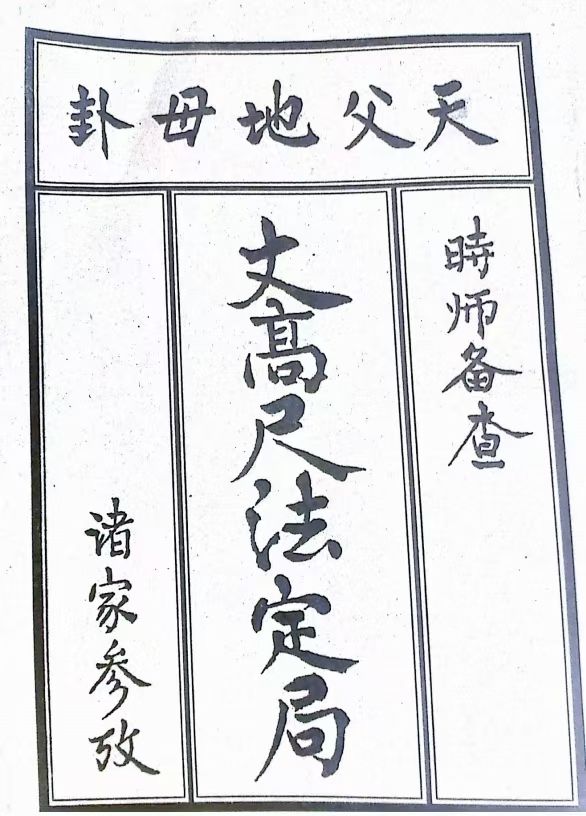 天父地母卦
時师备查
丈高尺法定局
诸家参攷